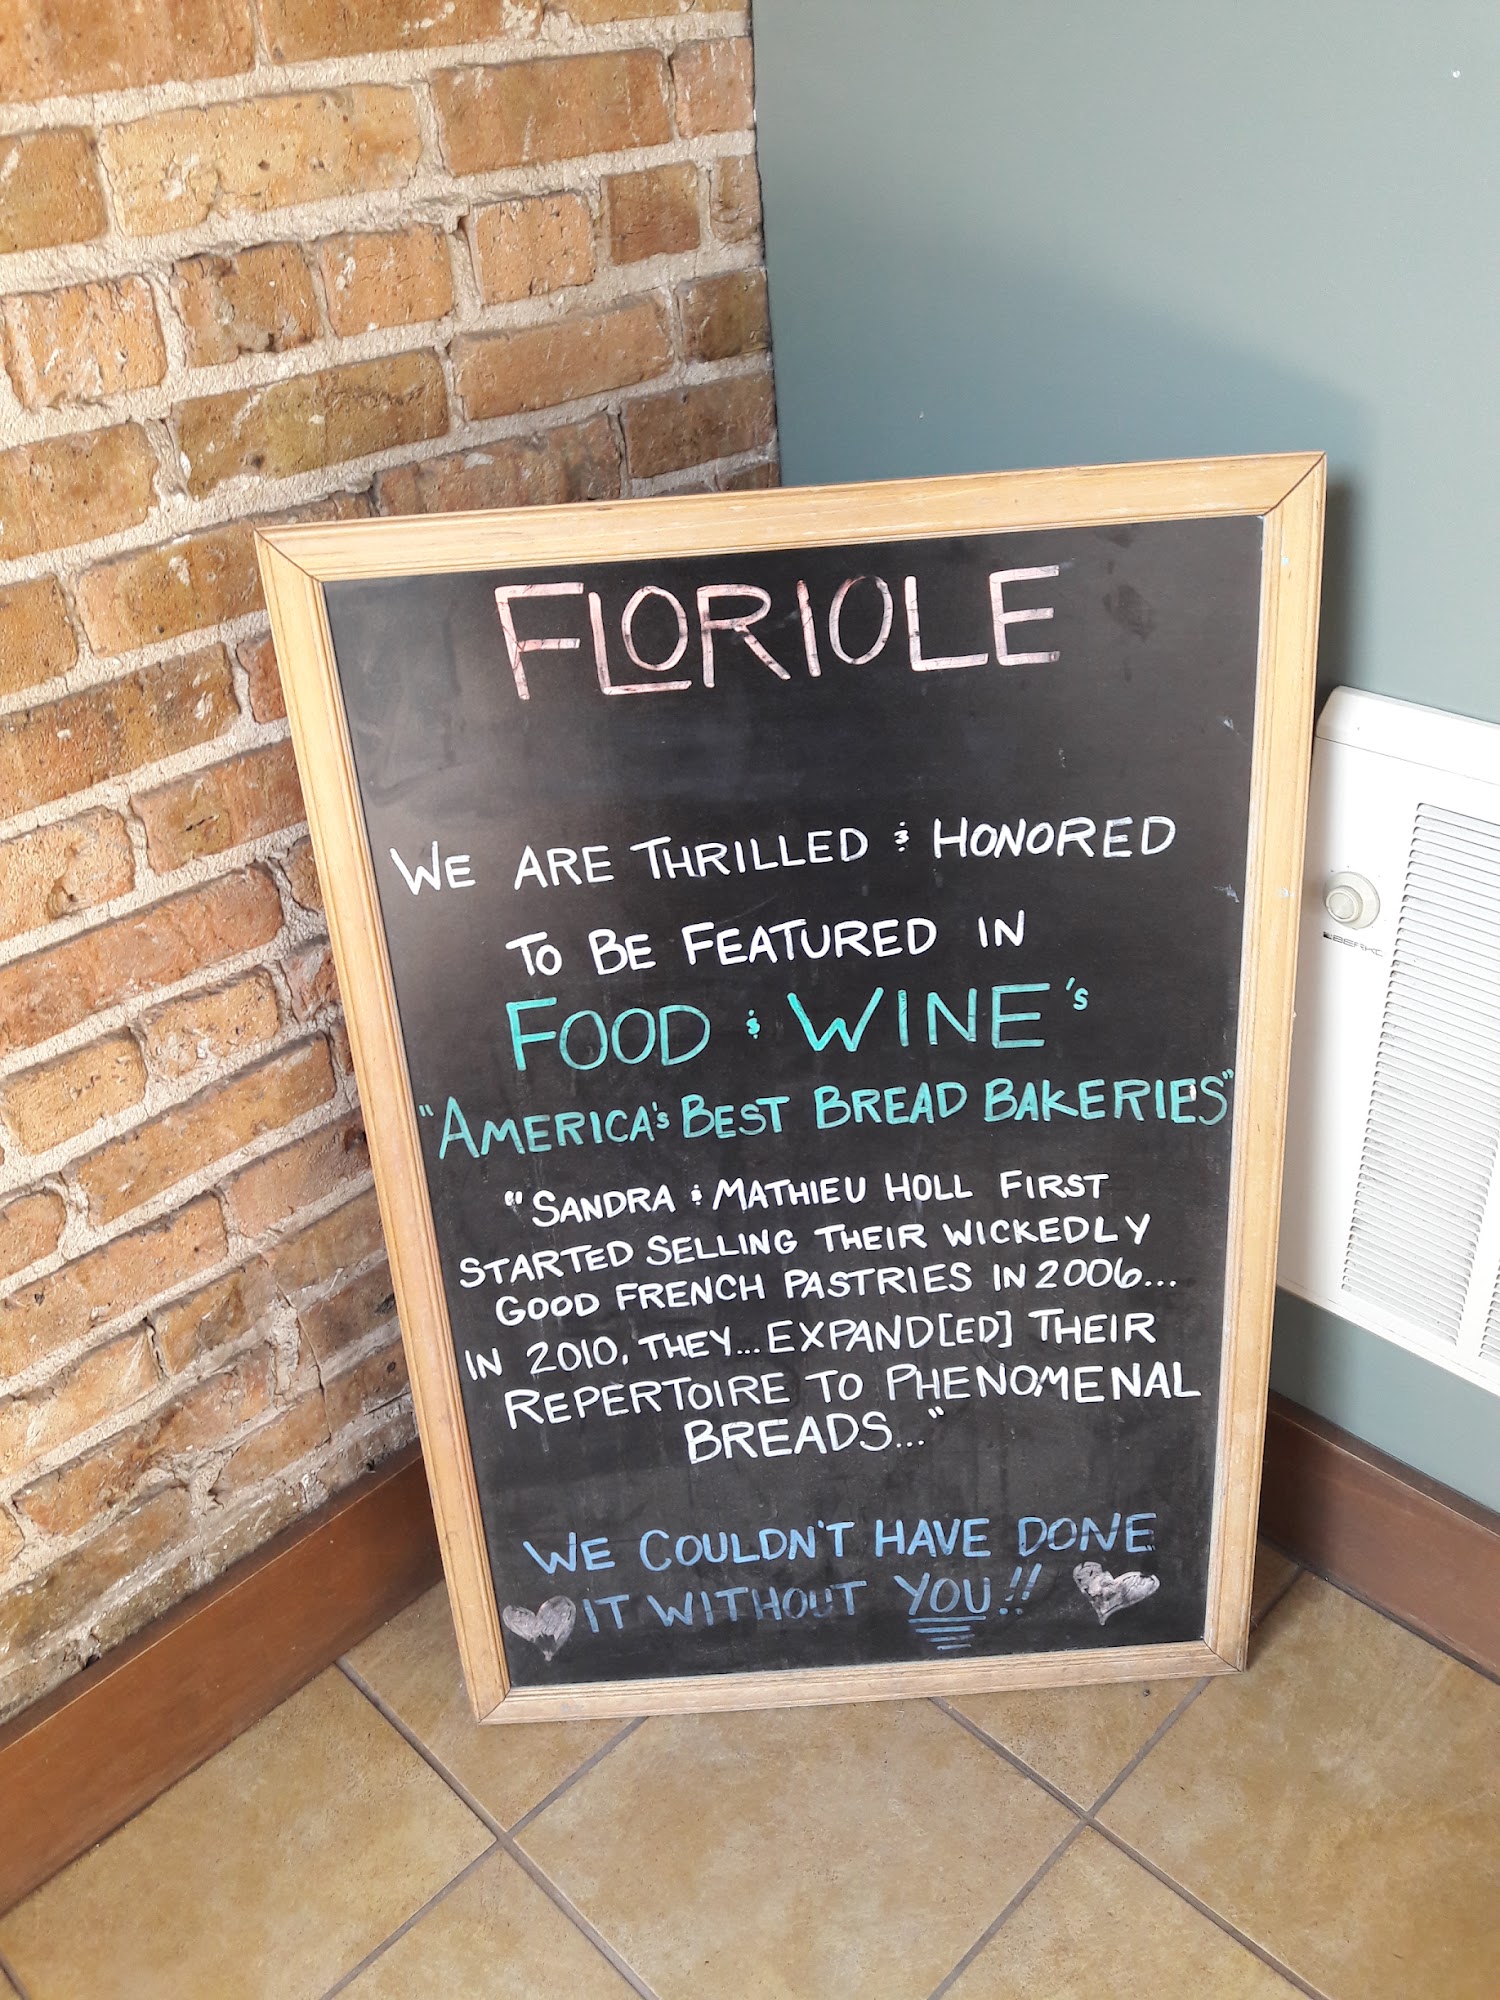 FLORIOLE
WE ARE THRILLED & HONORED
TO BE FEATURED IN
FOOD & WINE's
"AMERICA's BEST BREAD BAKERIES"
"SANDRA & MATHIEU HOLL FIRST
STARTED SELLING THEIR WICKEDLY
GOOD FRENCH PASTRIES IN 2006...
IN 2010, THEY... EXPAND[ED] THEIR
REPERTOIRE TO PHENOMENAL
BREADS..."
WE COULDN'T HAVE DONE
IT WITHOUT YOU!!